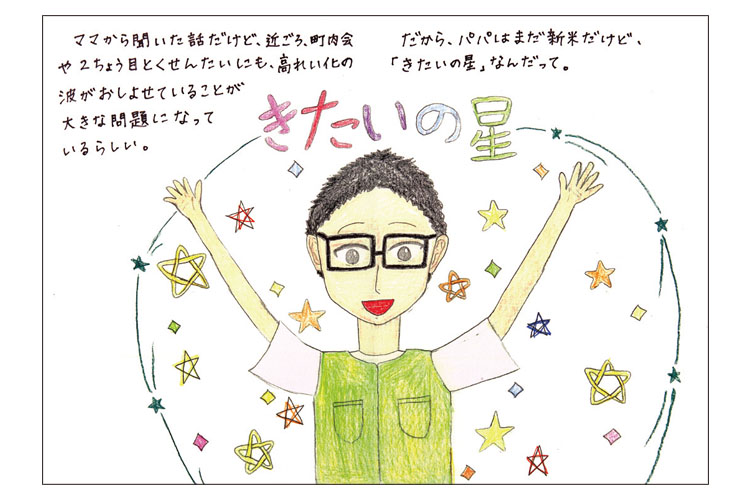 ママから聞いた話だけど、近ごろ、町内会
や2ちょう目とくせんたいにも、高れい化の
波がおしよせていることが
大きな問題になって
いるらしい。
だから、パパはまだ新米だけど、
「きたいの星」なんだって。
きたいの星